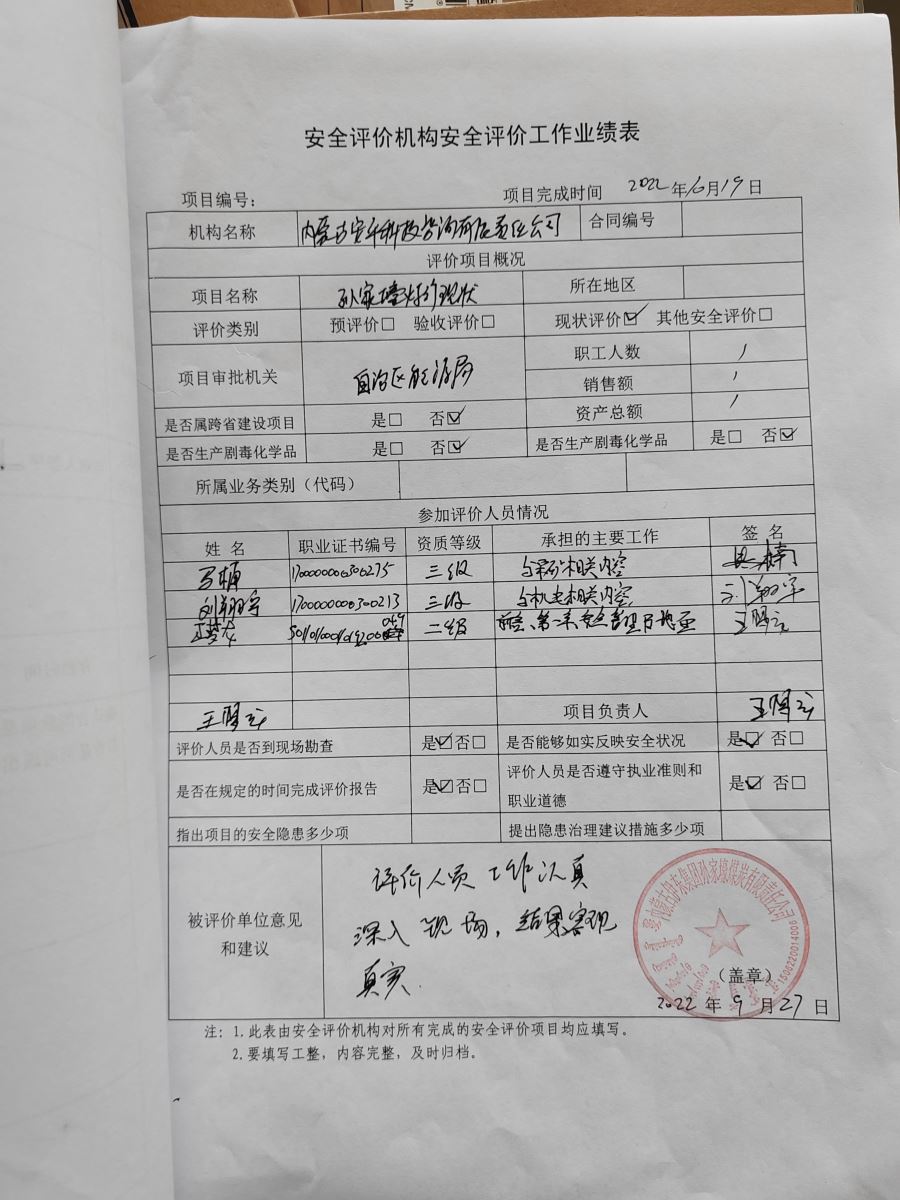 安全评价机构安全评价工作业绩表
项目编号： 项目完成时间 2022年6月19日
机构名称 内蒙古安平科技咨询有限责任公司 合同编号
评价项目概况
项目名称 孙家壕煤矿现状 所在地区
评价类别 预评价□ 验收评价□ 现状评价☑ 其他安全评价□
项目审批机关 自治区能源局 职工人数 /
销售额 /
是否属跨省建设项目 是□ 否☑ 资产总额 /
是否生产剧毒化学品 是□ 否☑ 是否生产剧毒化学品 是□ 否☑
所属业务类别（代码）
参加评价人员情况
姓 名 职业证书编号 资质等级 承担的主要工作 签 名
1700000000300215 三级 与采矿相关内容
刘翔宇 1700000000300213 三级 与机电相关内容 刘翔宇
二级
项目负责人
评价人员是否到现场勘查 是☑否□ 是否能够如实反映安全状况 是☑ 否□
是否在规定的时间完成评价报告 是☑否□ 评价人员是否遵守执业准则和
职业道德 是☑ 否□
指出项目的安全隐患多少项 提出隐患治理建议措施多少项
被评价单位意见
和建议
评价人员工作认真
深入现场，结果客观
真实
（盖章）
2022 年 9 月 27 日
注：1.此表由安全评价机构对所有完成的安全评价项目均应填写。
2.要填写工整，内容完整，及时归档。